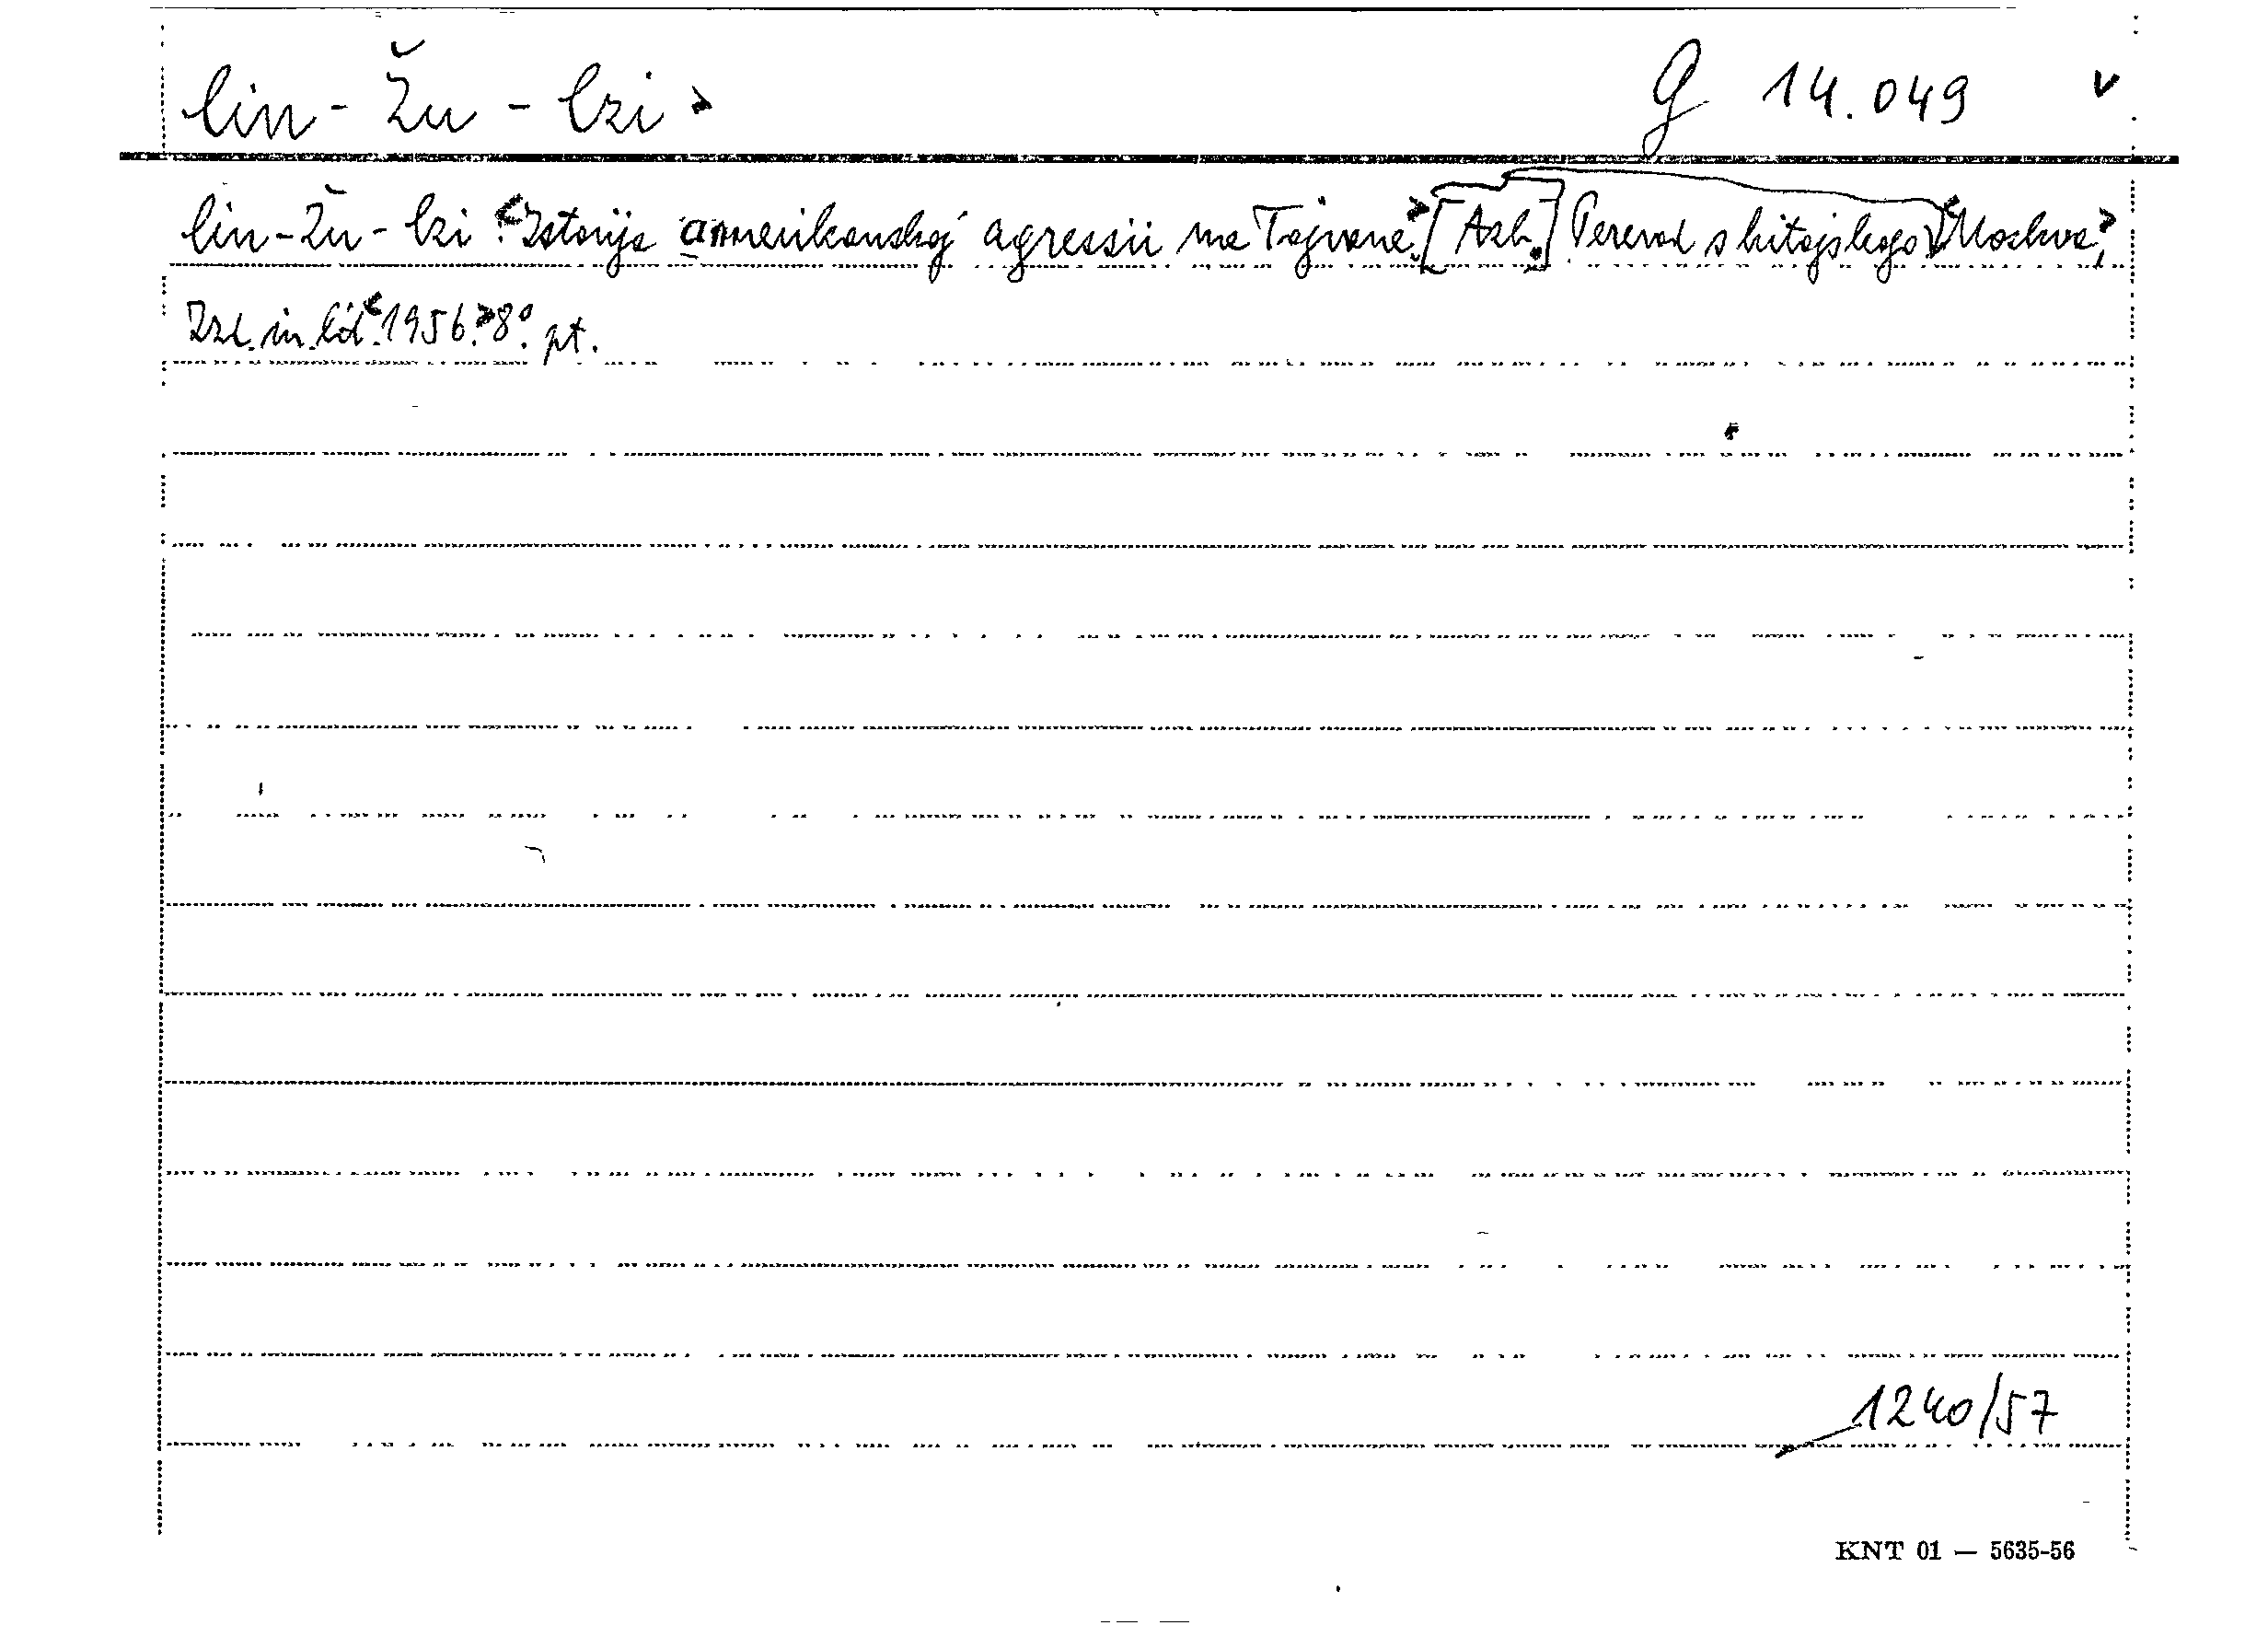 lin-Žu-lzi > G 14.049 v
lin-Žu-lzi: <Istorija amerikanskoj agressii na Tajvane.> [Azb.] Perevod s kitajskogo. <Moskva,>
Izd. in. lit. <1956.> 8°. pt.
1240/57
KNT 01 — 5635-56